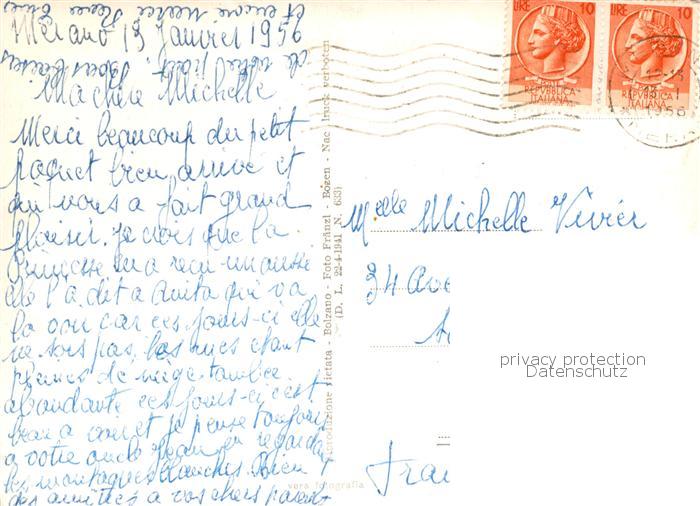 et encore merci
de votre
Merano 13 Janvier 1956
Ma chère Michelle
Merci beaucoup du petit
paquet bien arrivé et
qui nous a fait grand
plaisir. Je crois que la
Princesse en a reçu un aussi
elle l'a dit a Anita qui va
la voir car ces jours-ci elle
ne sors pas, les rues étant
pleines de neige tombée
abondante ces jours-ci c'est
beau a voir et je pense toujours
a votre oncle Jean en regardant
les montagnes blanches. Bien
des amitiés a vos chers parents
Riproduzione vietata - Bolzano - Foto Fränzl - Bozen - Nachdruck verboten
(D. L. 22-4-1941 N. 633)
vera fotografia
LIRE 10
REPVBBLICA
ITALIANA
LIRE 10
REPVBBLICA
ITALIANA
Melle Michelle Vivier
34 Ave
privacy protection
Datenschutz
Fran